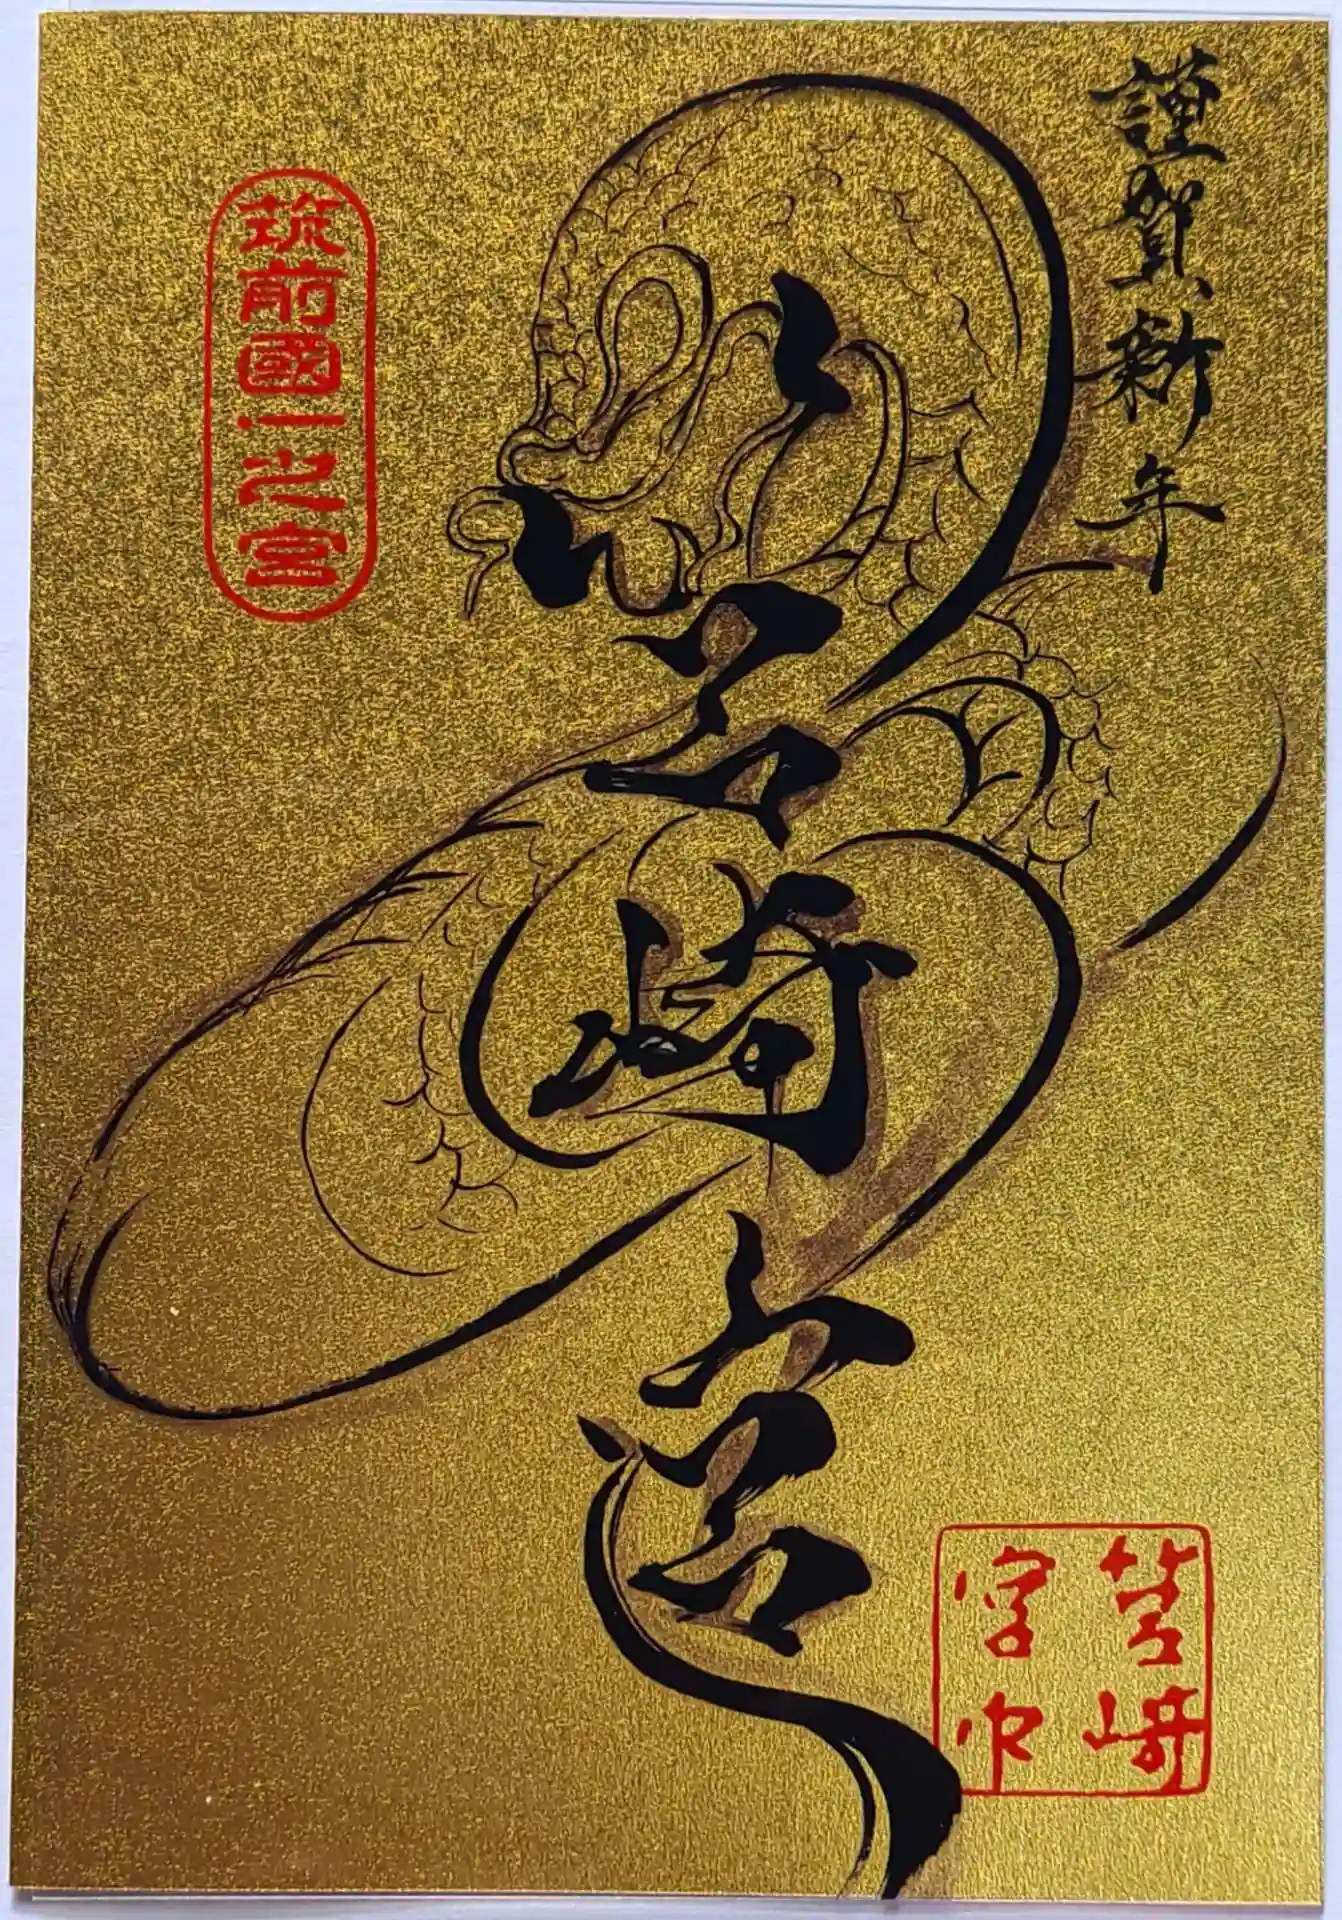 謹賀新年
筥崎宮
筑前國一之宮
筥崎
宮印